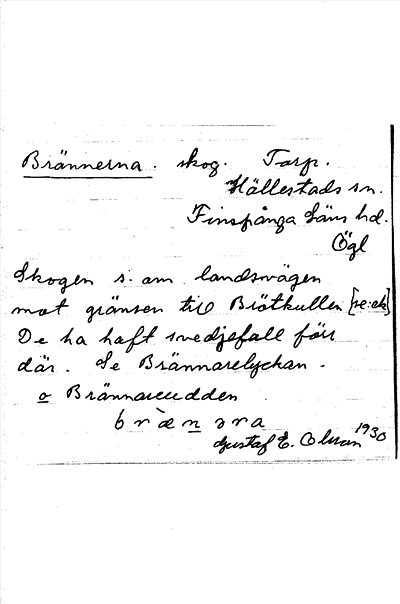 Brännerna. skog. Torp.
Hällestads sn.
Finspånga läns hd.
Ögl
Skogen s. om landsvägen
mot gränsen till Brötkullen [se: ek]
De ha haft svedjefall förr
där. Se Brännarelyckan -
o Brännareudden
bræ̀nəra
Gustaf E. Olsson 1930